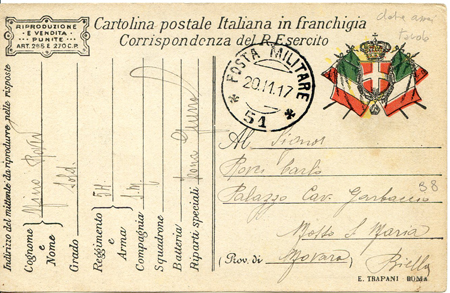 RIPRODUZIONE
E VENDITA
PUNITE
ART. 265 E 270 C.P.
Cartolina postale Italiana in franchigia
Corrispondenza del R. Esercito
data anni
POSTA MILITARE
20.11.17
* 51 *
Indirizzo del mittente da riprodurre nelle risposte
Cognome e Nome
Grado Sold.
Reggimento e Arma
Compagnia
Squadrone
Batteria
Riparti speciali Zona Guerra
Al Signor
Carlo
Palazzo Cav.
38
Mosso S. Maria
(Prov. di Novara) Biella
E. TRAPANI ROMA